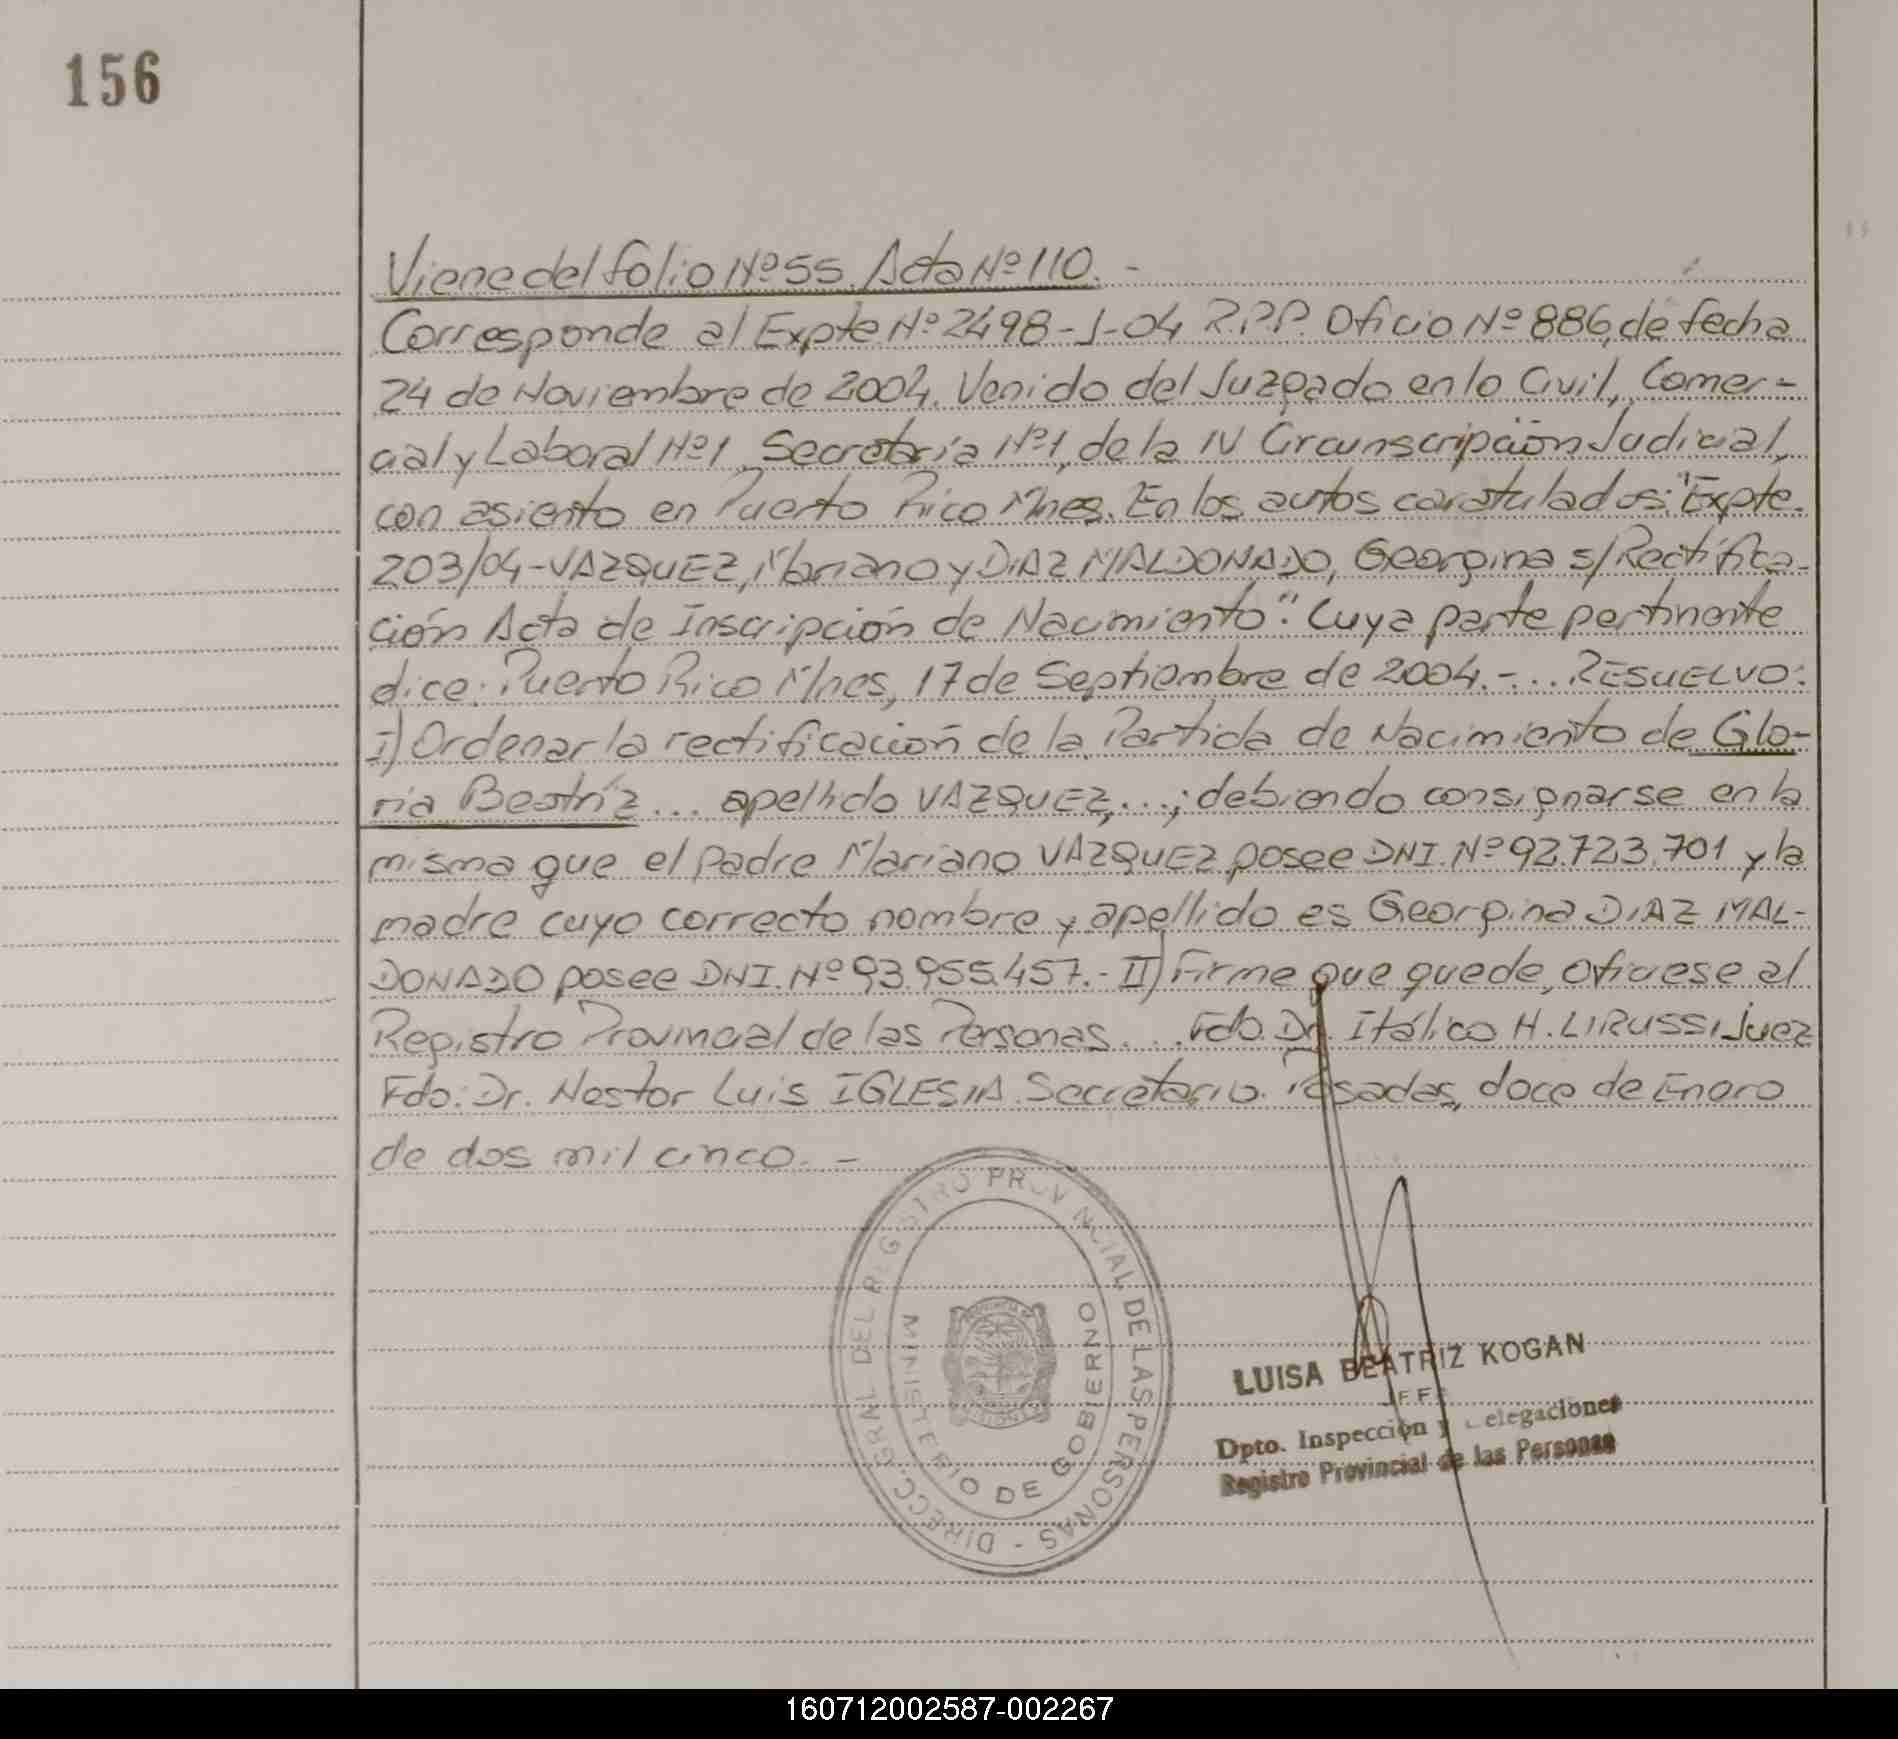 156
Viene del folio Nº 55. Acta Nº 110. -
Corresponde al Expte Nº 2498-J-04 R.P.P. Oficio Nº 886, de fecha
24 de Noviembre de 2004. Venido del Juzgado en lo Civil, Comer-
cial y Laboral Nº 1, Secretaría Nº 1, de la IV Circunscripción Judicial,
con asiento en Puerto Rico Mnes. En los autos caratulados: "Expte.
203/04-VAZQUEZ, Mariano y DIAZ MALDONADO, Georgina s/Rectifica-
ción Acta de Inscripción de Nacimiento". Cuya parte pertinente
dice: Puerto Rico Mnes, 17 de Septiembre de 2004.-... RESUELVO:
I) Ordenar la rectificación de la Partida de Nacimiento de Glo-
ria Beatríz ... apellido VAZQUEZ,...; debiendo consignarse en la
misma que el padre Mariano VAZQUEZ posee DNI. Nº 92.723.701 y la
madre cuyo correcto nombre y apellido es Georgina DIAZ MAL-
DONADO posee DNI. Nº 93.955.457.- II) Firme que quede, ofíciese al
Registro Provincial de las Personas.... Fdo. Dr. Itálico H. LIRUSSI Juez
Fdo: Dr. Nestor Luis IGLESIA. Secretario. Posadas, doce de Enero
de dos mil cinco. -
DIRECC. GRAL DEL REGISTRO PROVINCIAL DE LAS PERSONAS -
MINISTERIO DE GOBIERNO
LUISA BEATRIZ KOGAN
Dpto. Inspección y Delegaciones
Registro Provincial de las Personas
160712002587-002267